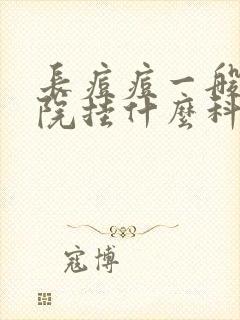 長痘痘一般
院挂什麼科
寇博